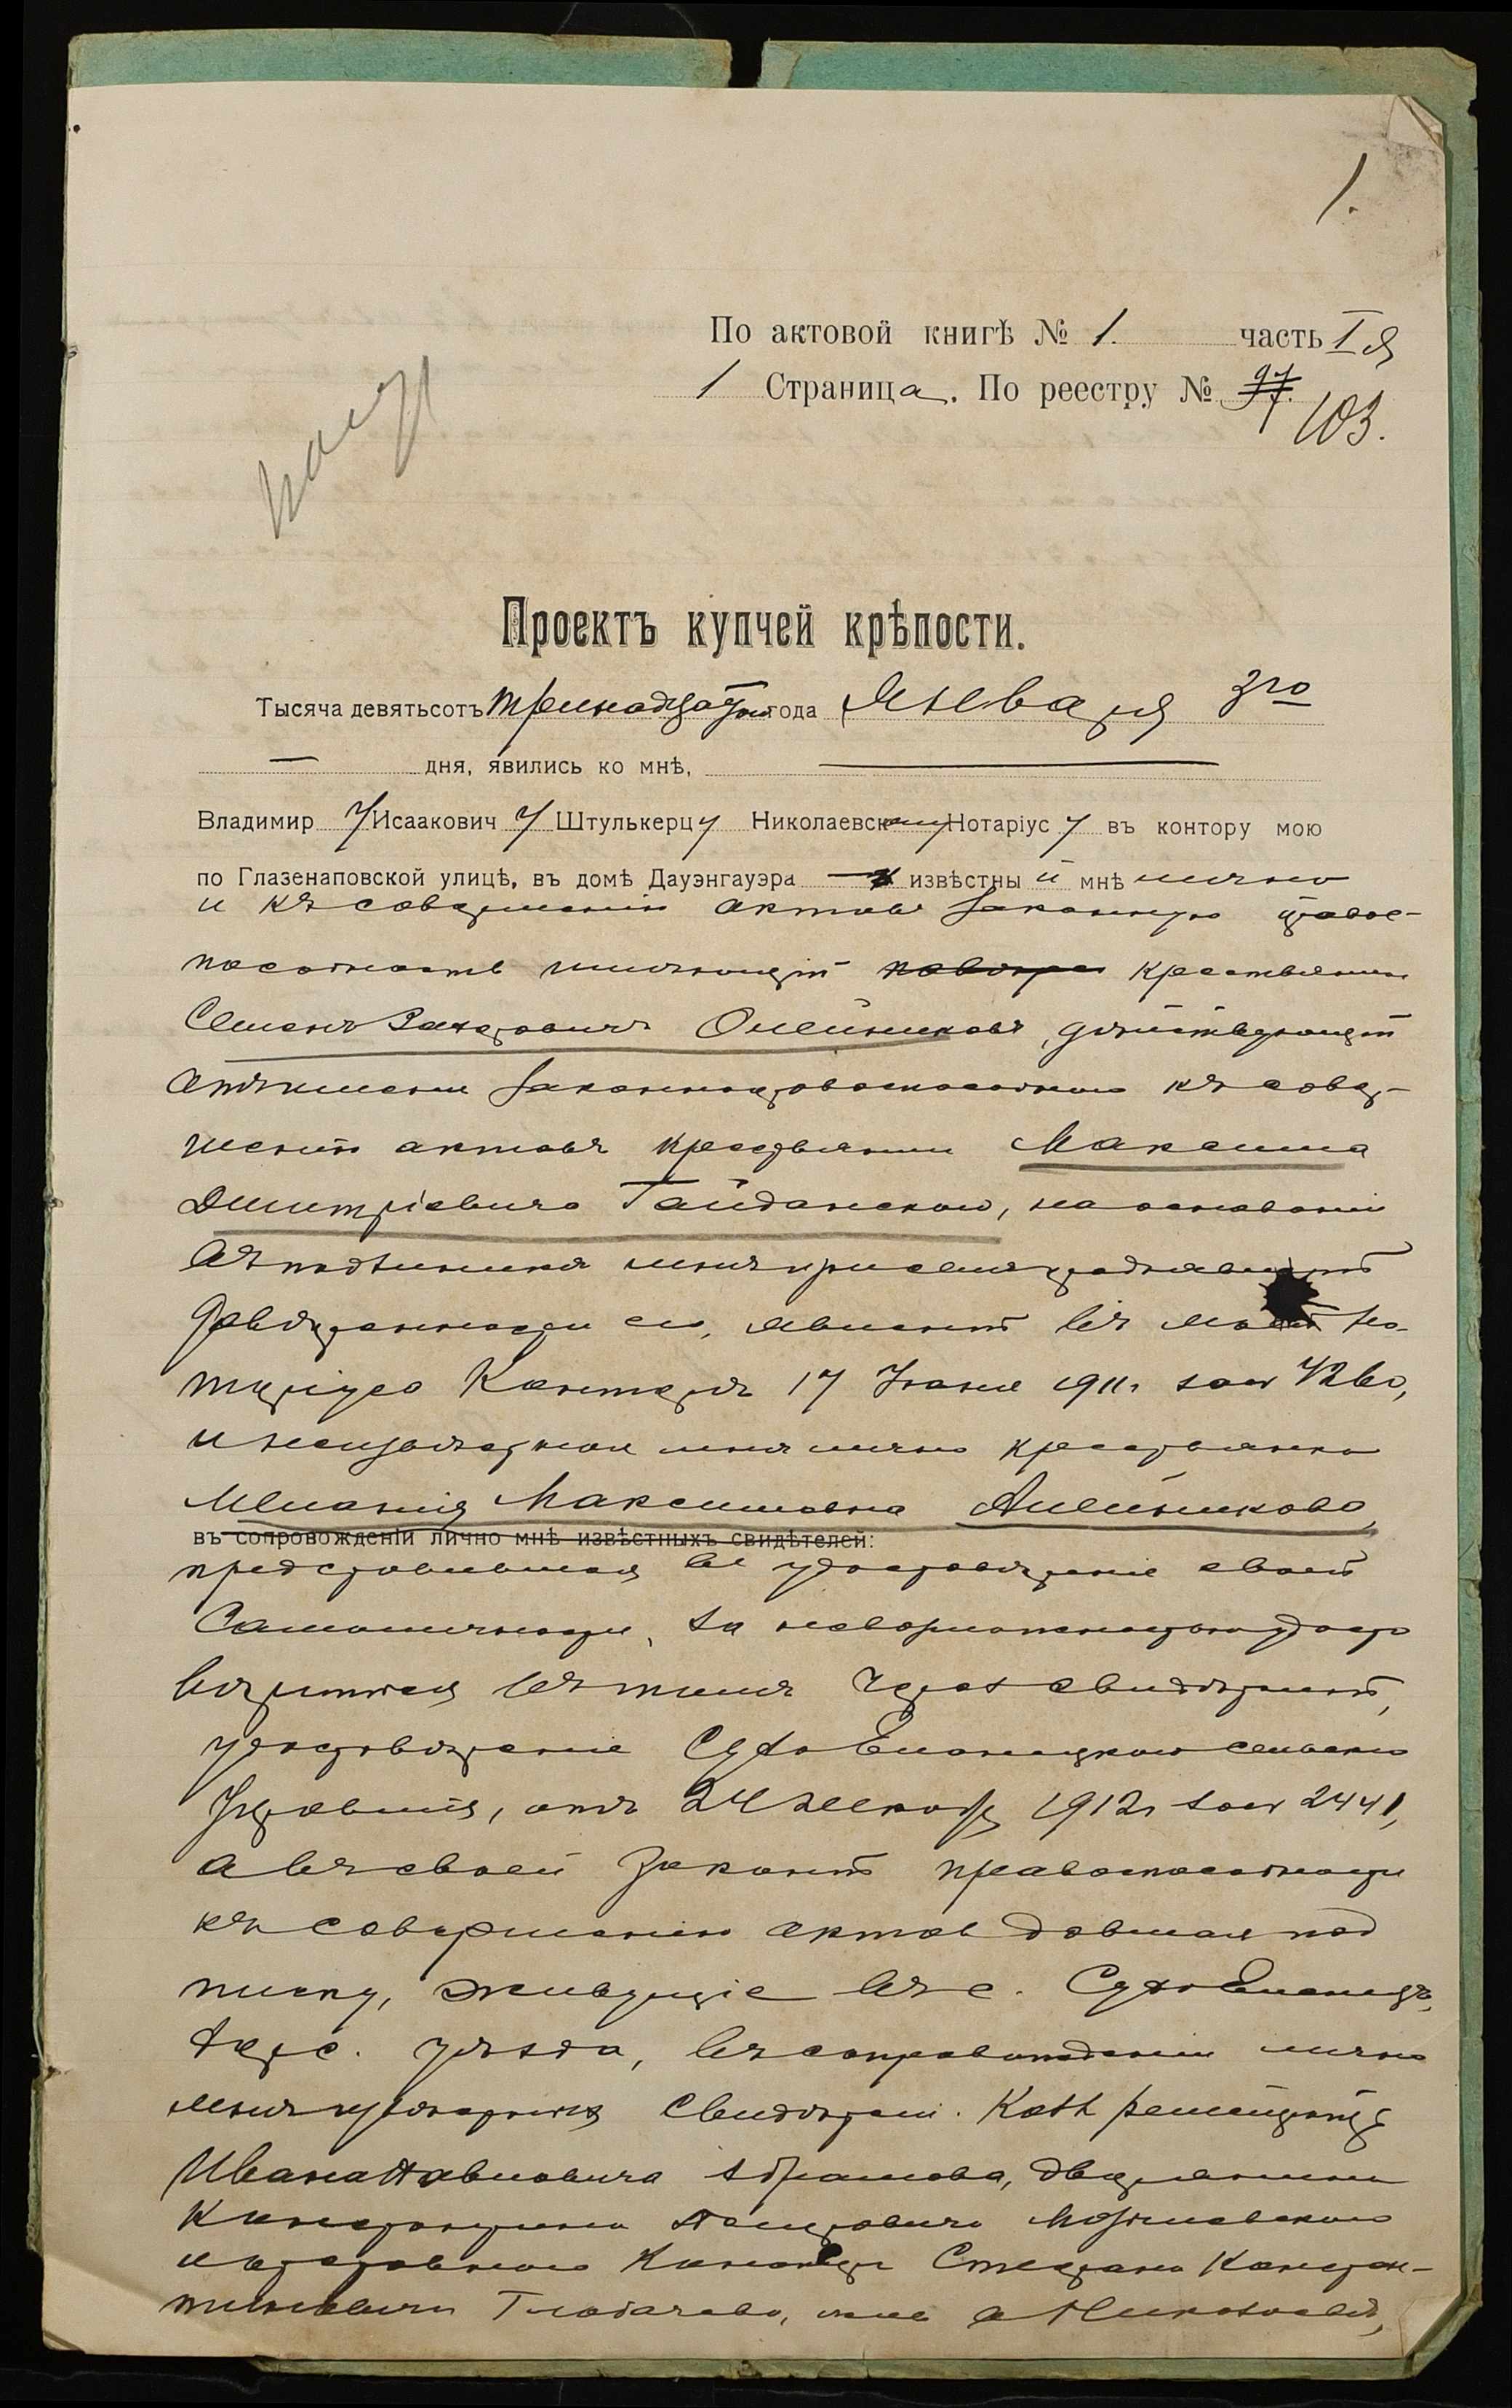 1.
По актовой книгѣ № 1. часть I я
1 Страница. По реестру № 97. 103.
Проектъ купчей крѣпости.
Тысяча девятьсотъ тринадцатого года Января 3го
— дня, явились ко мнѣ,
Владимиру Исааковичу Штулькерцу Николаевскому Нотаріусу въ контору мою
по Глазенаповской улицѣ, въ домѣ Дауэнгауэра извѣстный мнѣ лично
и къ совершенію актовъ законную правос-
пособность имѣющій крестьянинъ
Семенъ Захаровичъ Олейниковъ, дѣйствующій
отъ имени законноправоспособного къ совер-
шенію актовъ крестьянина Максима
Дмитріевича Гайданского, на основаніи
въ подлинникѣ мнѣ предъявленной
довѣренности его, явленной въ моей но-
таріуса Конторѣ 17 Іюня 1911г. за №
и неизвѣстная мнѣ лично крестьянка
Меланія Максимовна Алейникова,
въ сопровожденіи лично мнѣ извѣстныхъ свидѣтелей:
представившая въ удостовѣреніе своей
самоличности, за невозможностью удосто
вѣриться въ таковой через свидѣтелей,
удостовѣреніе Сухо Еланецкого сельского
Управленія, отъ 24 Декабря 1912г за № 2441,
а въ своей законной правоспособности
къ совершенію актов давшая под
писку, живущіе въ с. Сухо Еланецъ,
Херс. уѣзда, въ сопровожденіи лично
мнѣ извѣстныхъ свидѣтелей:
Ивана Павловича Абрамова, дворянина
Константина Петровича
и отставного Степана Констан-
тиновича Глобачева, жив. в г. Николаевѣ,